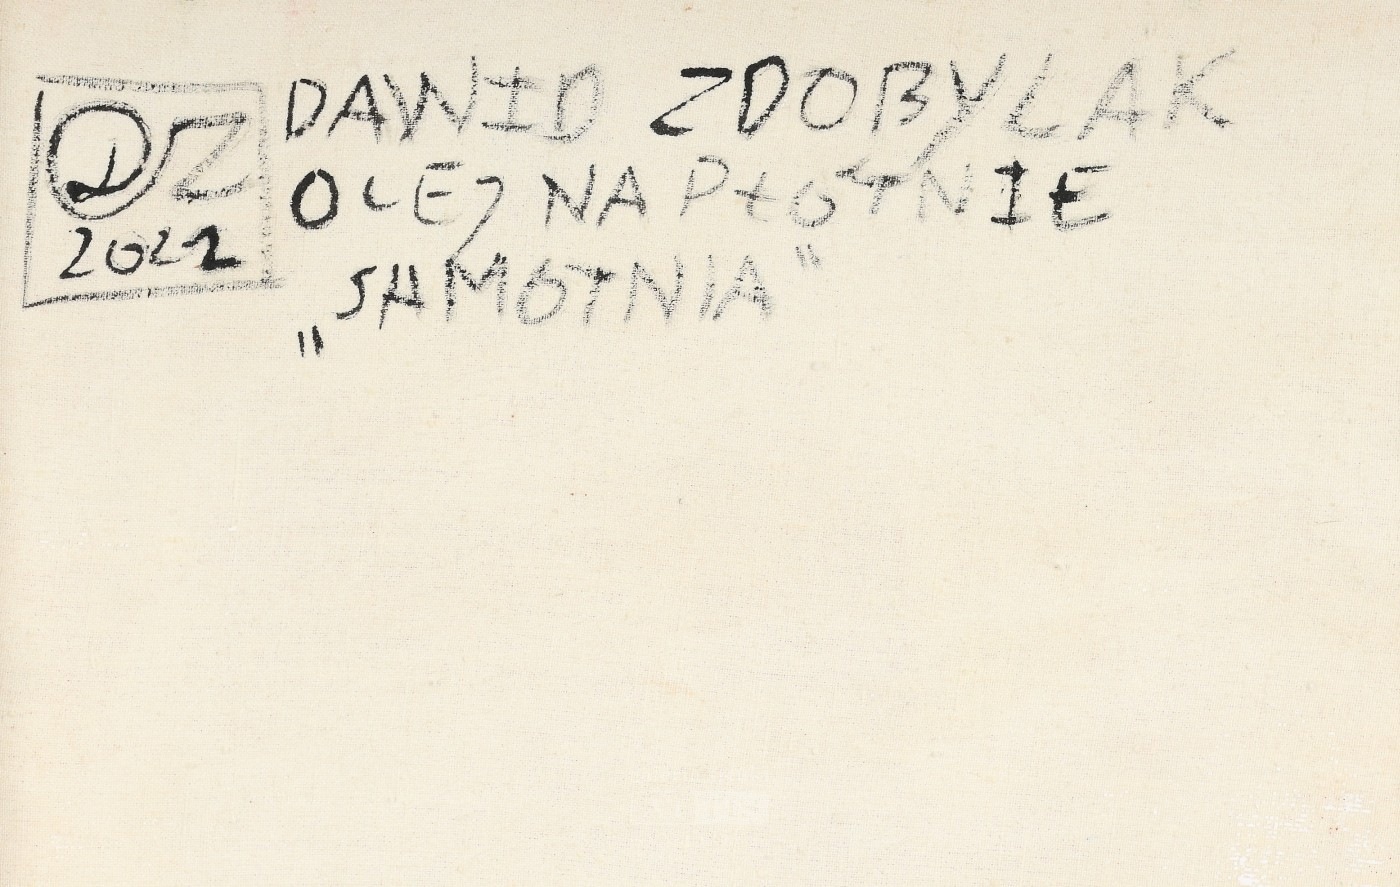 DZ
2022
DAWID ZDOBYLAK
OLEJ NA PŁÓTNIE
„SAMOTNIA"